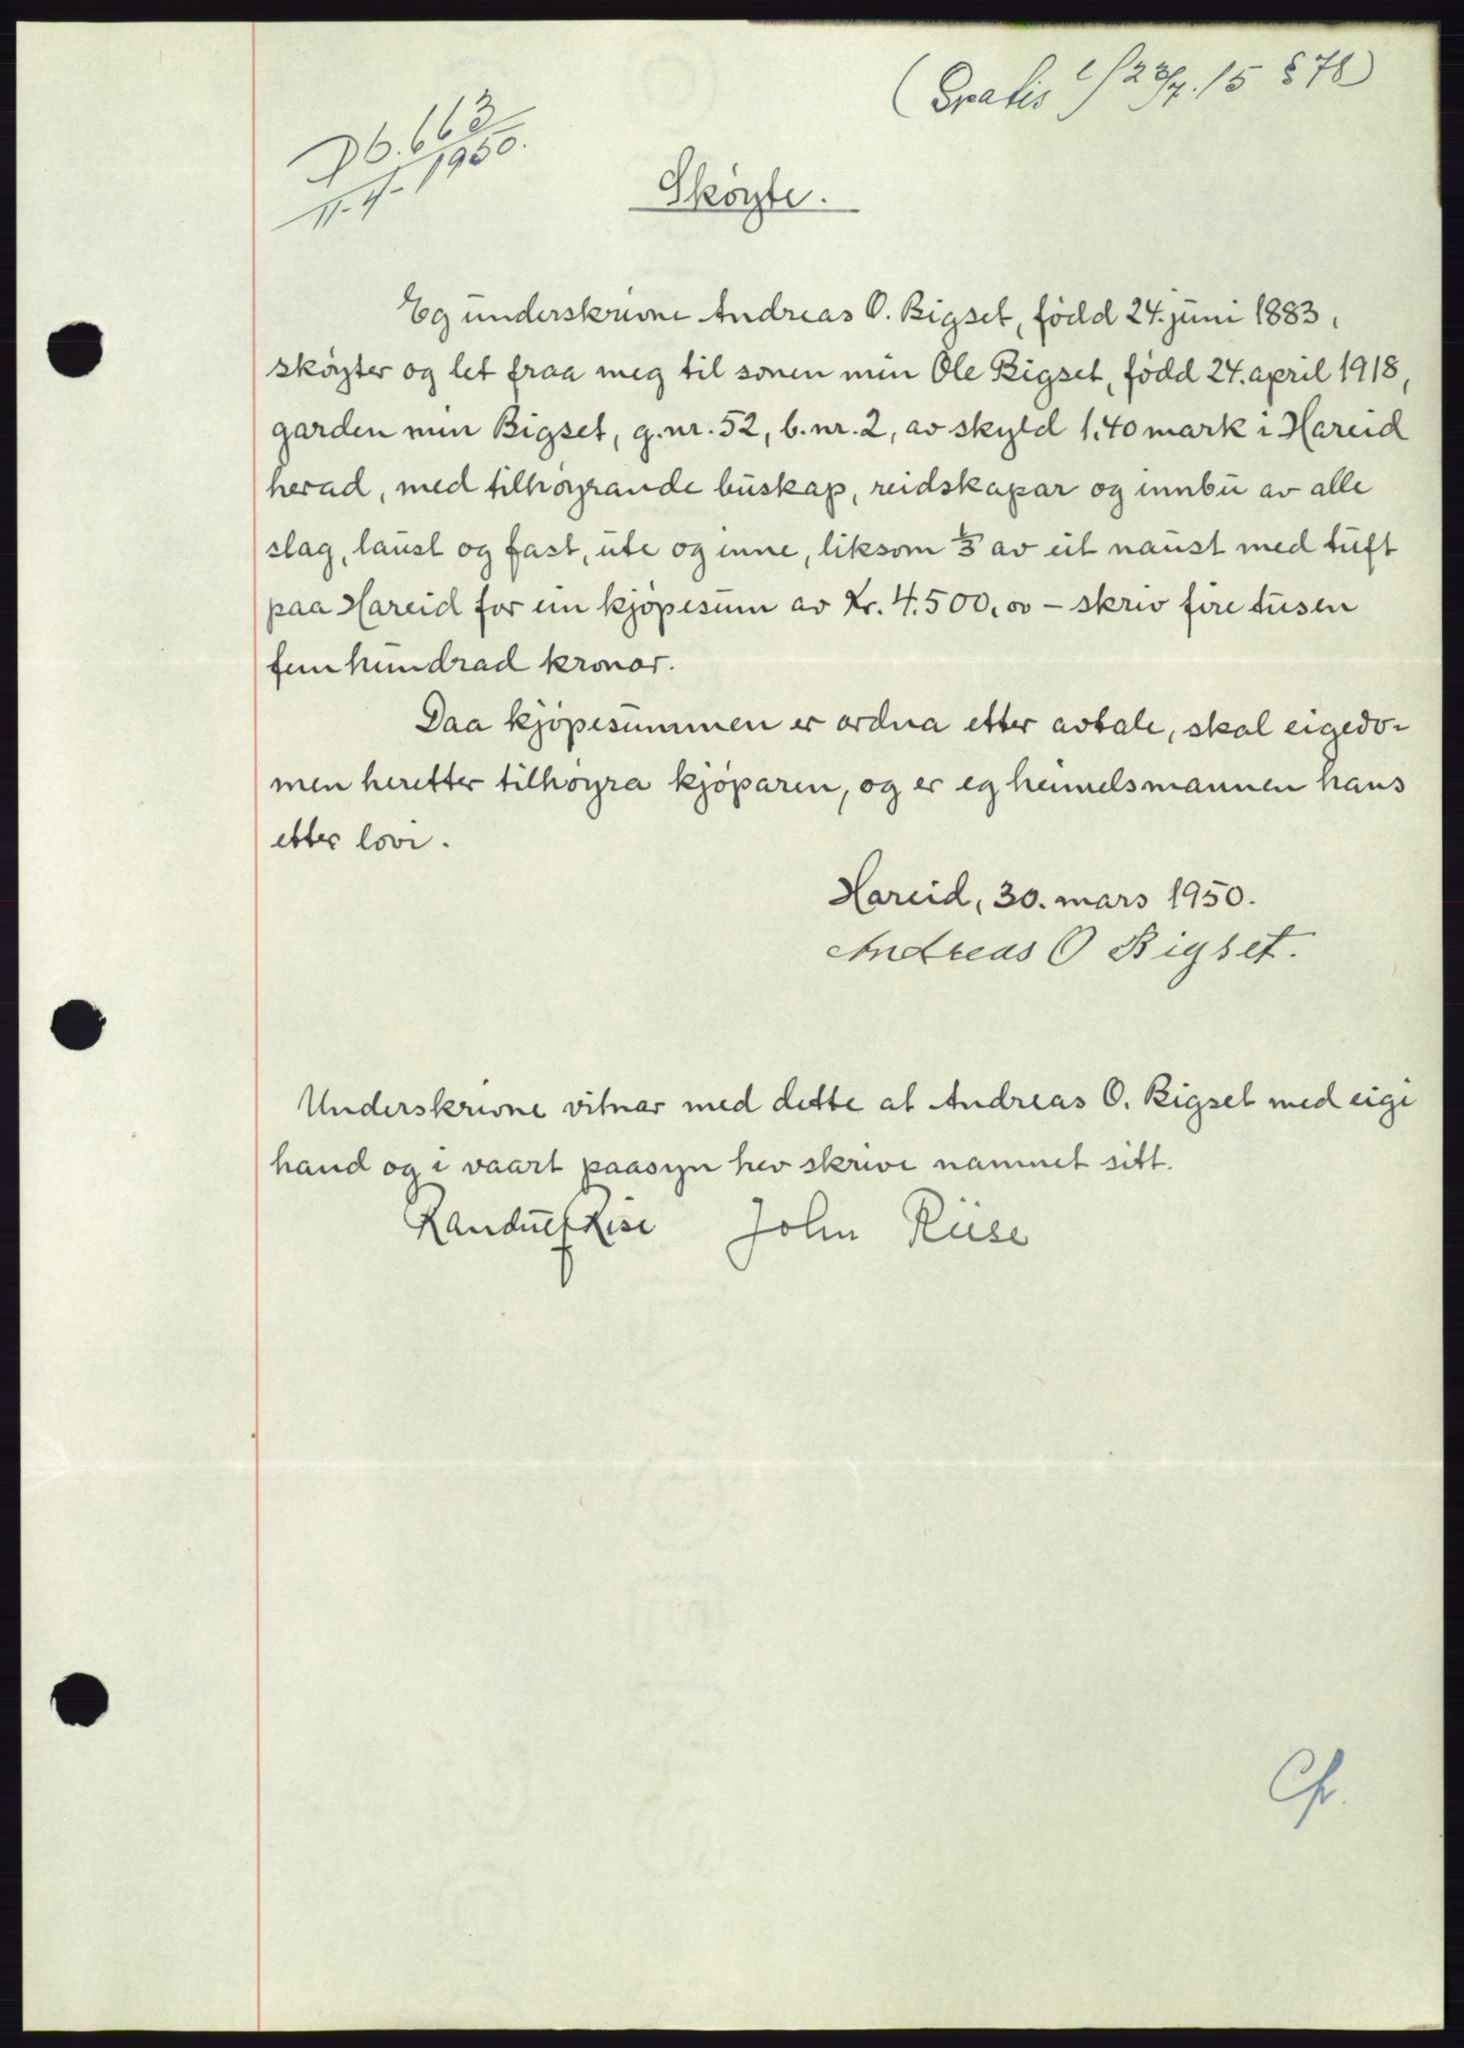 (Gratis l/ 23/7.15 § 78)
Db. 663
11-4-1950.
Skøyte.
Eg underskrivne Andreas O. Bigset, fødd 24. juni 1883,
skøyter og let fraa meg til sonen min Ole Bigset, fødd 24. april 1918,
garden min Bigset, g.nr. 52, b.nr. 2, av skyld 1.40 mark i Hareid
herad, med tilhøyrande buskap, reidskapar og innbu av alle
slag, laust og fast, ute og inne, liksom 1/3 av eit naust med tuft
paa Hareid for ein kjøpesum av Kr. 4.500,00 – skriv fire tusen
fem hundrad kronor.
Daa kjøpesummen er ordna etter avtale, skal eigedo-
men heretter tilhøyra kjøparen, og er eg heimelsmannen hans
etter lovi.
Hareid, 30. mars 1950.
Andreas O Bigset.
Underskrivne vitnar med dette at Andreas O. Bigset med eigi
hand og i vaart paasyn hev skrive namnet sitt.
Rise John Riise